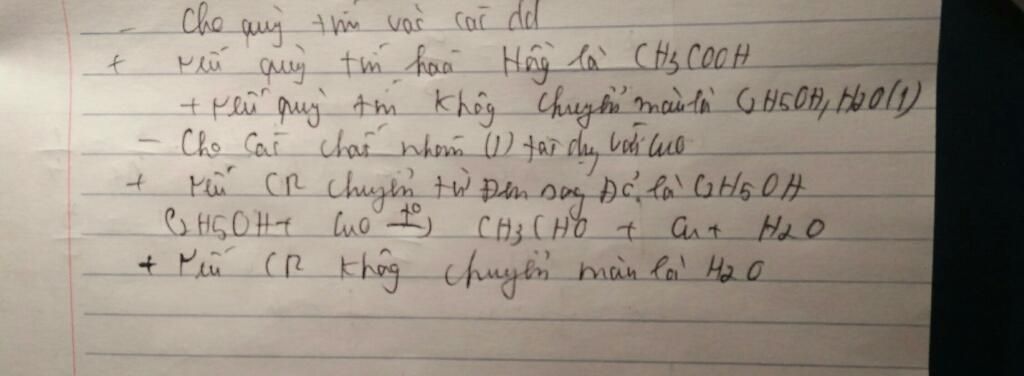 - Cho quỳ tím vào các dd
+ Nếu quỳ tím hoá Hồng là CH3COOH
+ Nếu quỳ tím không chuyển màu là C2H5OH, H2O (1)
- Cho các chất nhóm (1) tác dụng với CuO
+ Nếu CR chuyển từ Đen sang Đỏ là C2H5OH
C2H5OH + CuO t° → CH3CHO + Cu + H2O
+ Nếu CR không chuyển màu là H2O